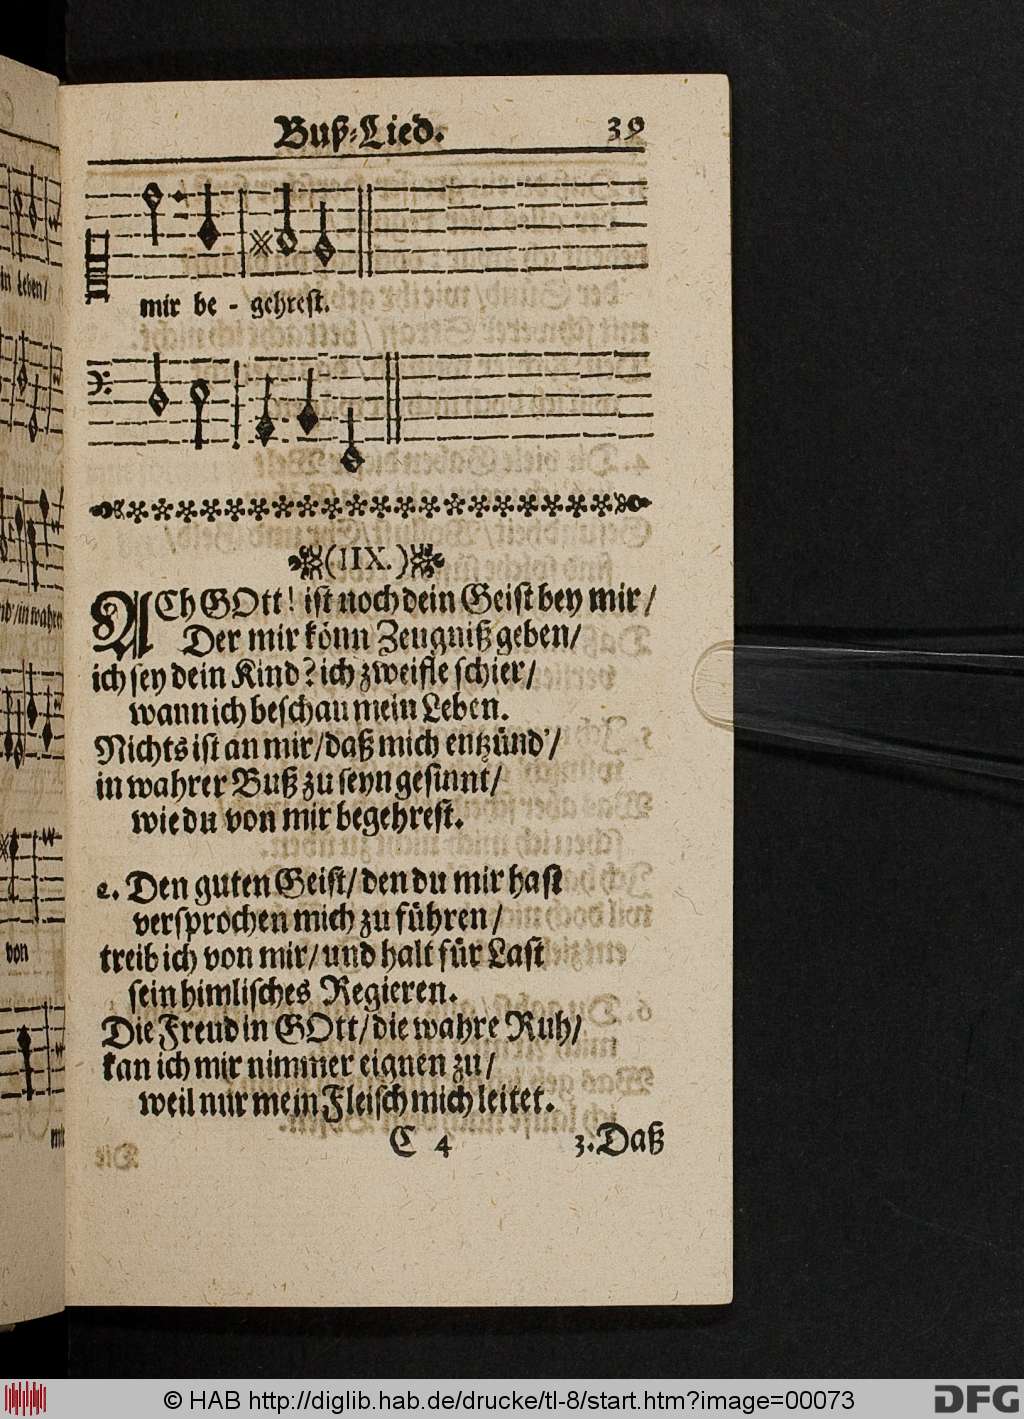 Buß-Lied. 39
mir be - gehrest.
(IIX.)
ACh GOtt! ist noch dein Geist bey mir/
Der mir könn Zeugniß geben/
ich sey dein Kind? ich zweifle schier/
wann ich beschau mein Leben.
Nichts ist an mir/ daß mich entzünd'/
in wahrer Buß zu seyn gesinnt/
wie du von mir begehrest.
2. Den guten Geist/ den du mir hast
versprochen mich zu führen/
treib ich von mir/ und halt für Last
sein himlisches Regieren.
Die Freud in GOtt/ die wahre Ruh/
kan ich mir nimmer eignen zu/
weil nur mein Fleisch mich leitet.
C 4 3. Daß
in Leben/
in wahrer
von
© HAB http://diglib.hab.de/drucke/tl-8/start.htm?image=00073
DFG